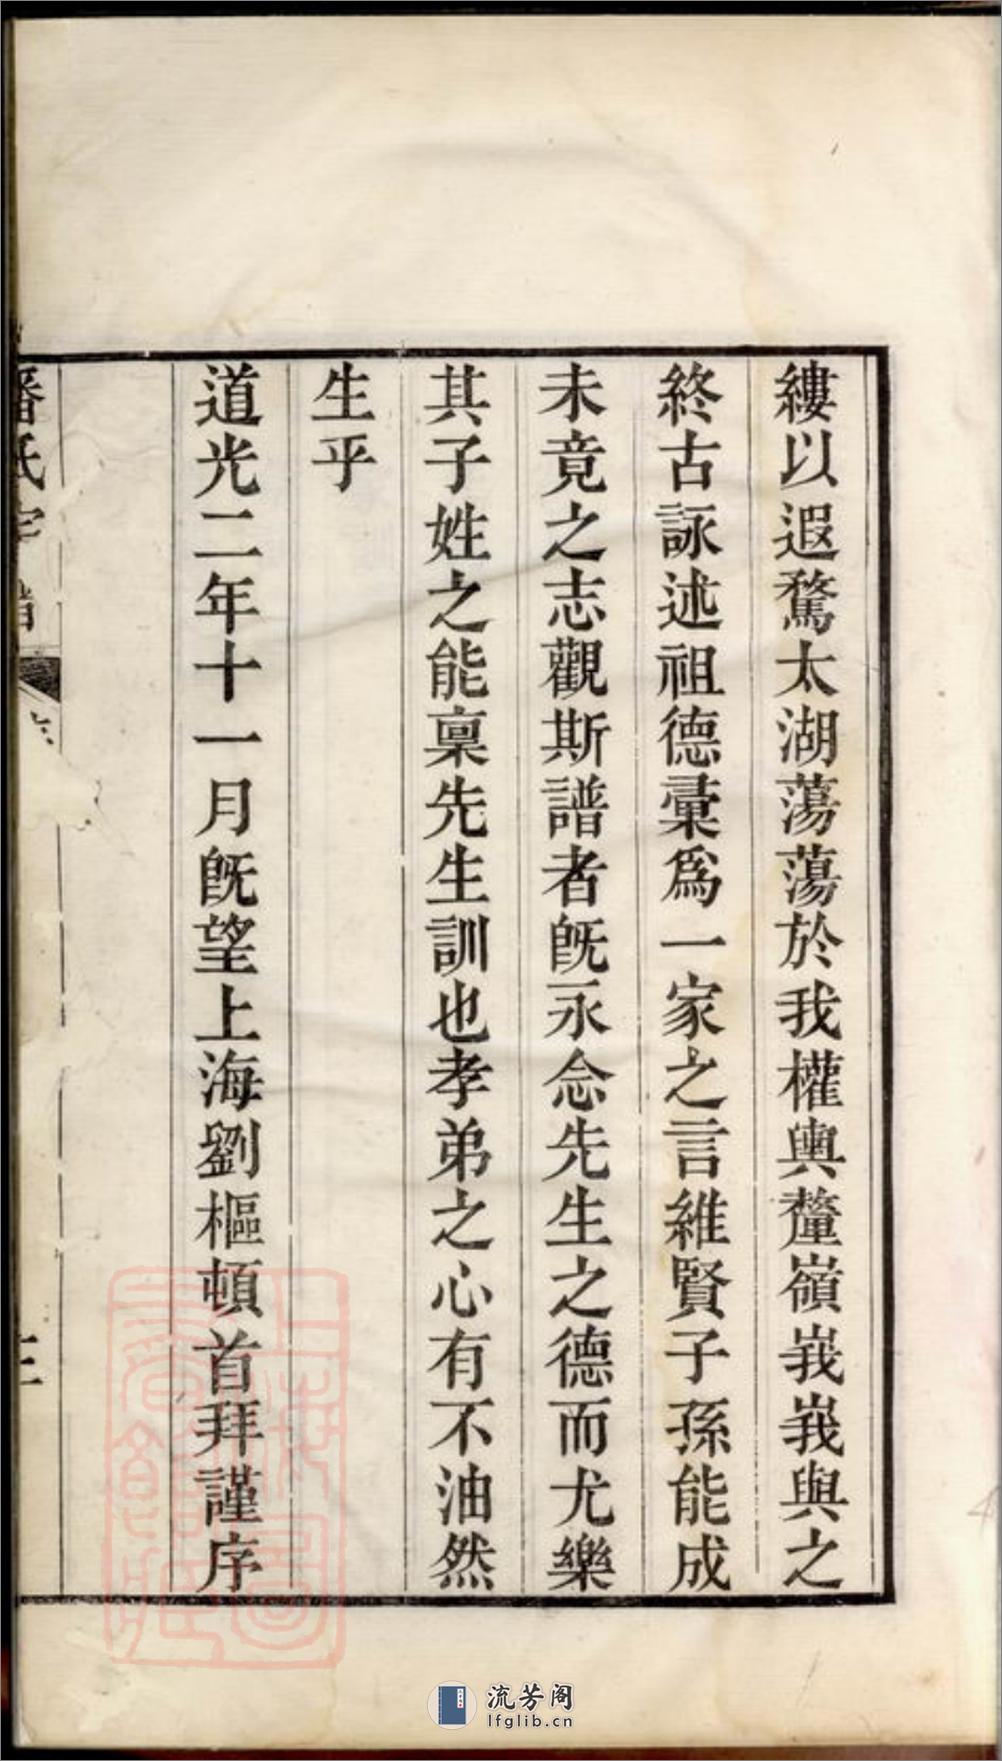 縷以遐騖太湖蕩蕩於我權輿釐嶺峩峩與之
終古詠述祖德彙爲一家之言維賢子孫能成
未竟之志觀斯譜者旣永念先生之德而尤樂
其子姓之能稟先生訓也孝弟之心有不油然
生乎
道光二年十一月旣望上海劉樞頓首拜謹序
潘氏宗譜
三
上海圖書館藏
流芳阁
lfglib.cn